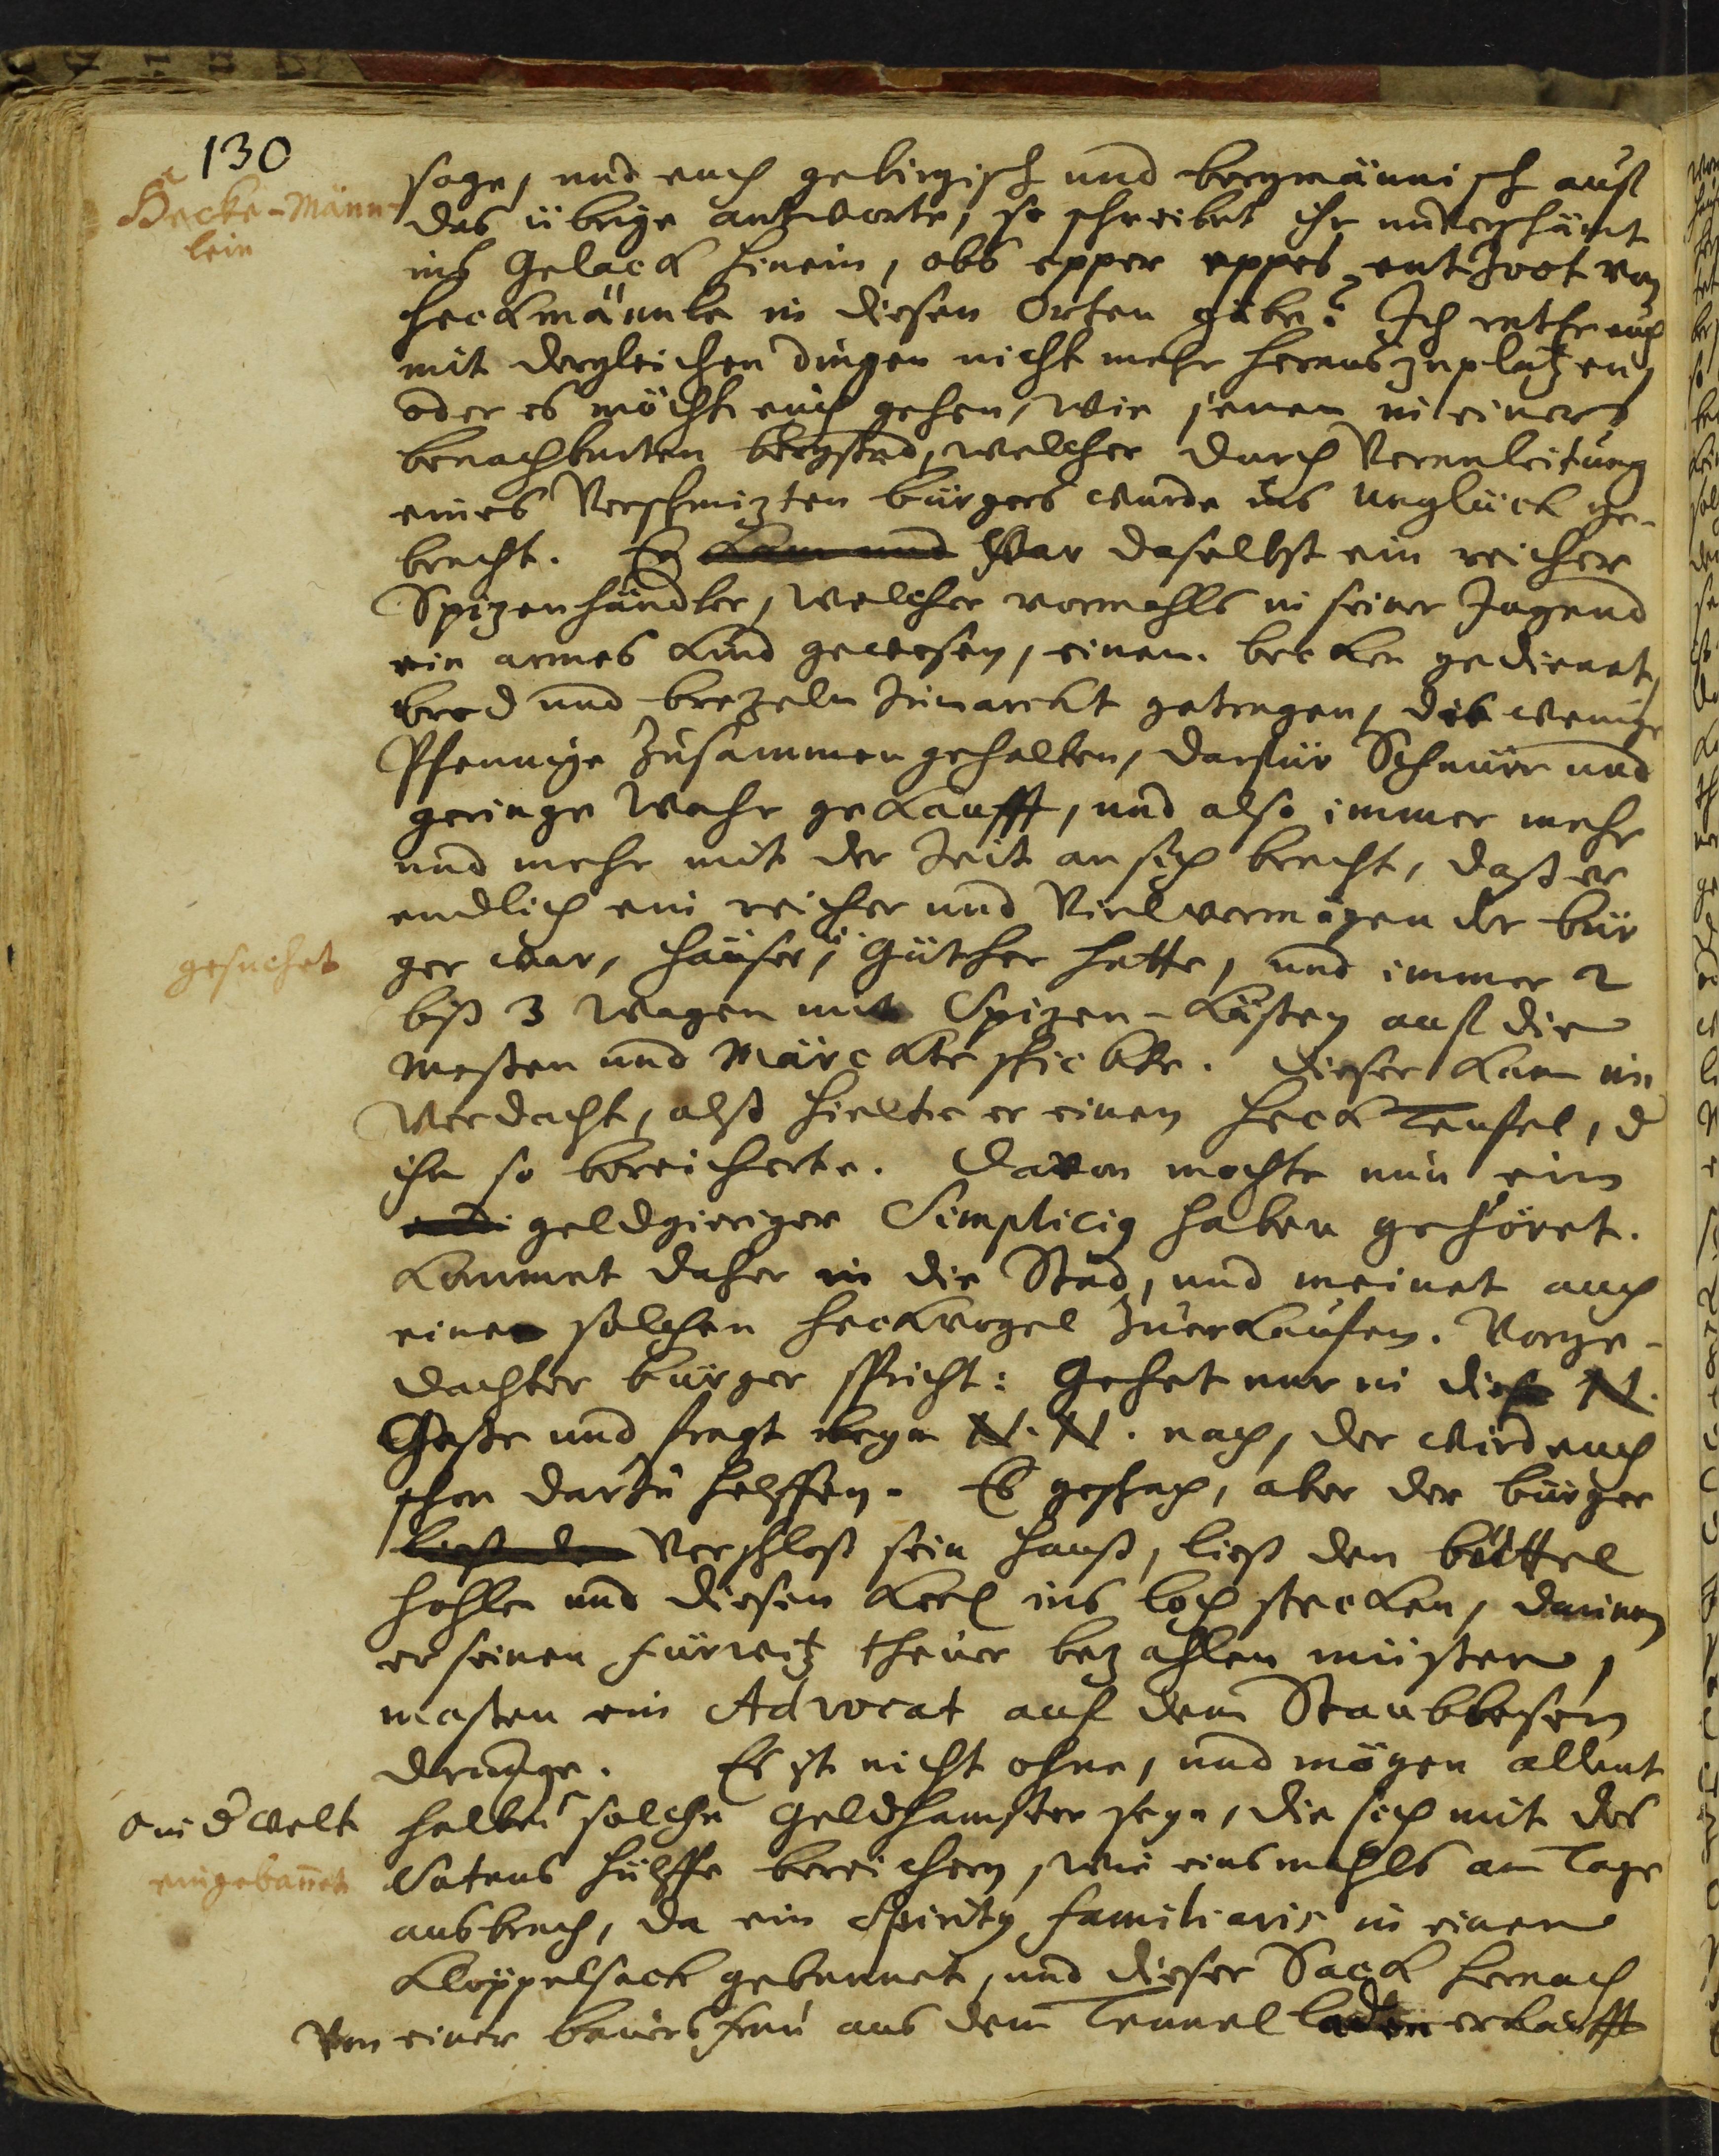 130
Hecke-Männ-
lein
sage, und euch gebirgisch und bergmännisch auf
das übrige antworte, so schreibet ihr unverschämt
ins Gelack hinein, obs epper eppes von
heckmännle in diesen Orten gäbe? Ich rathe euch
mit dergleichen dingen nicht mehr herauszuplatzen,
oder es möchte euch gehen, wie jenen in einer
benachbarten bergstad, welcher durch Veranleitung
eines Verschmizten bürgers wurde ins Unglück ge-
bracht. Es kam und War daselbst ein reicher
Spizenhändler, welcher vormahls in seiner Jugend
ein armes kind gewesen, einen becken gedienet,
brod und brezeln zumarckt getragen, die wenige
Pfennige zusammen gehalten, darfür Schnüre und
geringe Wahr gekaufft, und also immer mehr
und mehr mit der Zeit an sich bracht, daß er
endlich ein reicher und Vielvermögender bür
gesuchet
ger war, häuser, Güther hatte, und immer 2
biß 3 Wagen mit Spizen-kästen auf die
Meßen und Märckte schickte. Dieser kam in
Verdacht, alß hielte er einen heck Teufel, d
ihn so bereicherte. Davon mochte nun ein
geldgieriger Simplicig haben gehöret.
kommet daher in die Stad, und meinet auch
einen solchen heckvogel zuerkaufen. Vorge-
dachter bürger spricht: Gehet nur in die N.
Gaße und fragt beym N. N. nach, der wird euch
schon darzu helffen. Es geschach, aber der bürger
ließ den Verschloß sein hauß, ließ den büttel
hohlen und diesen kerl ins loch stecken, darinnen
er seinen fürwitz theuer bezahlen müsten,
maßen ein Advocat auf dem Staubbesem
drunge. Es ist nicht ohne, und mögen allent
in d welt
halben solche Geldhamster seyn, die sich mit des
eingebannet
Satans hülffe bereichern, wie einsmahls am Tage
ausbrach, da ein Spiritg familiaris in einen
klöppelsack gebannet, und dieser Sack hernach
Von einer bauersfrau aus dem laden erkaufft